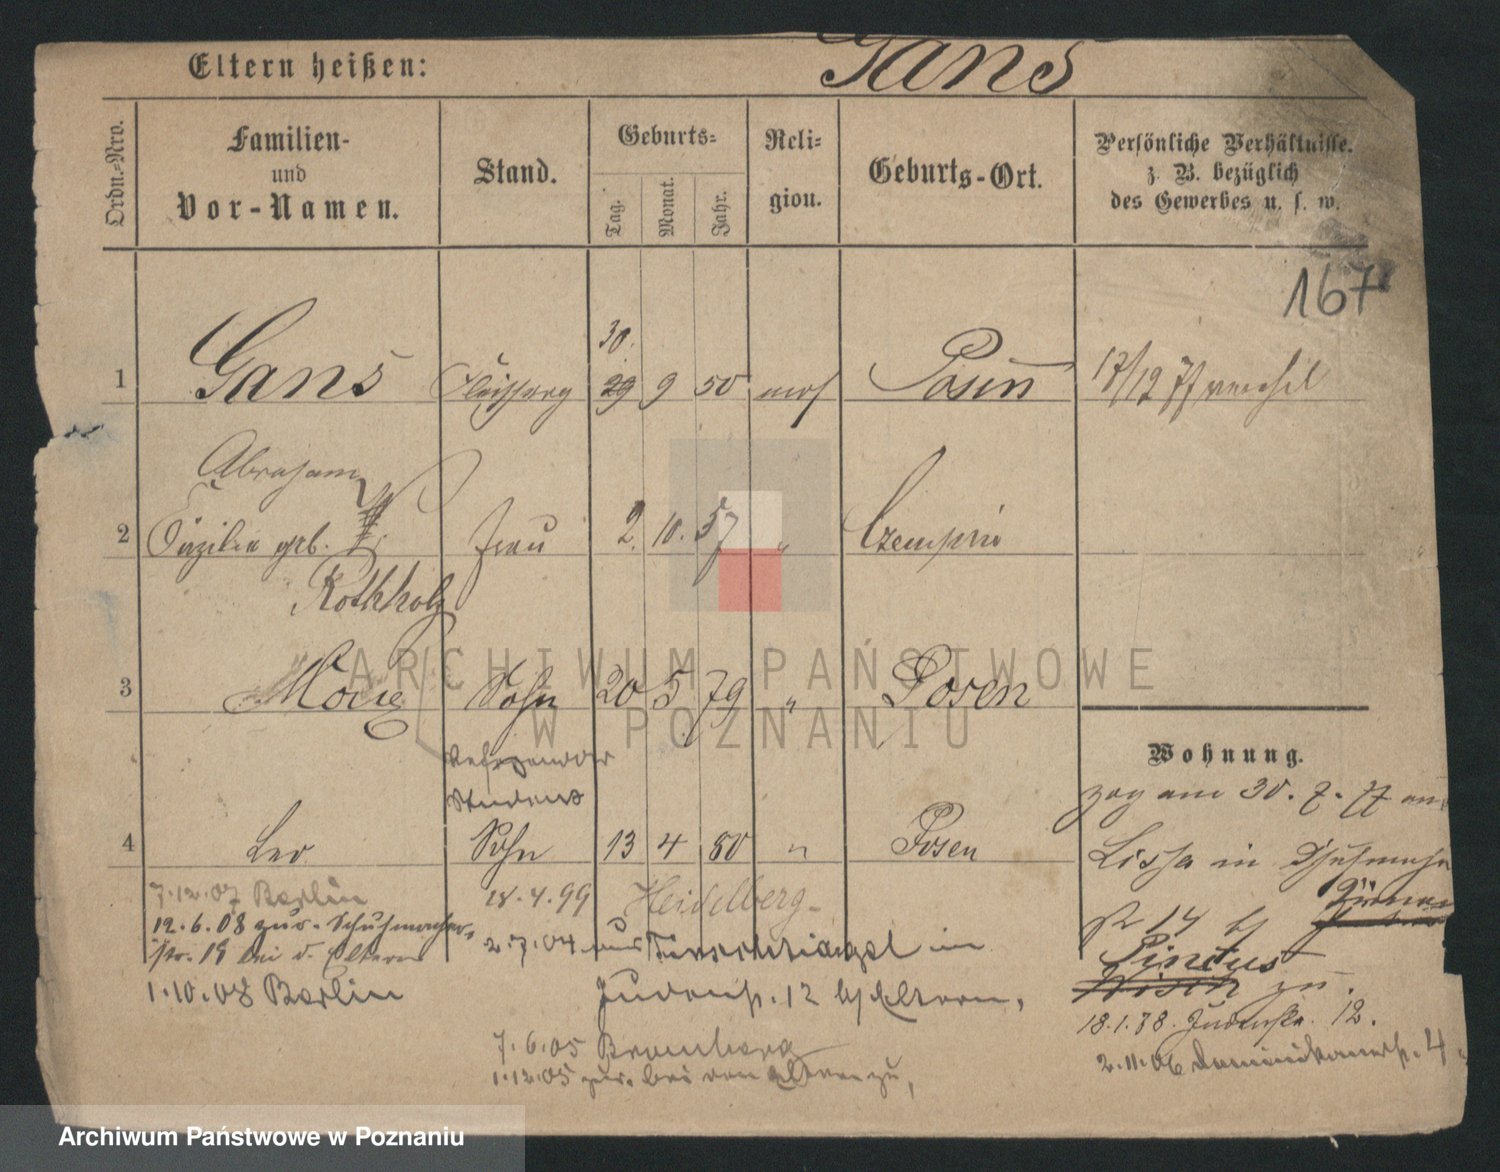 Eltern heißen: Gans
Ordn.-Nro.
Familien- und Vor-Namen.
Stand.
Geburts-
Tag. Monat. Jahr.
Reli-gion.
Geburts-Ort.
Persönliche Verhältnisse.
z. B. bezüglich
des Gewerbes u. s. w.
167
30.
1 Gans 29 9 50 mos Posen 17/12 77
Abraham
2 geb. Frau 2. 10. 57 " Czempin
Rothholz
3 Sohn 20 5 79 " Posen
Referendar
Student
4 Leo Sohn 13 4 80 " Posen
Wohnung.
zog am 30. 7. 77 aus
Lissa in
14
Pincus
zu.
18.1.78. Judenstr. 12.
2.11.06 Dominikanerstr. 4
7.12.07 Berlin
12.6.08 zur. Schuhmacher-
str. 19 bei d. Eltern
1.10.08 Berlin
18.4.99 Heidelberg
2.7.04 aus Tirschtiegel in
Judenstr. 12 b/ Eltern,
7.6.05 Bromberg
1.12.05 zur. bei den Eltern zu,
ARCHIWUM PAŃSTWOWE
W POZNANIU
Archiwum Państwowe w Poznaniu